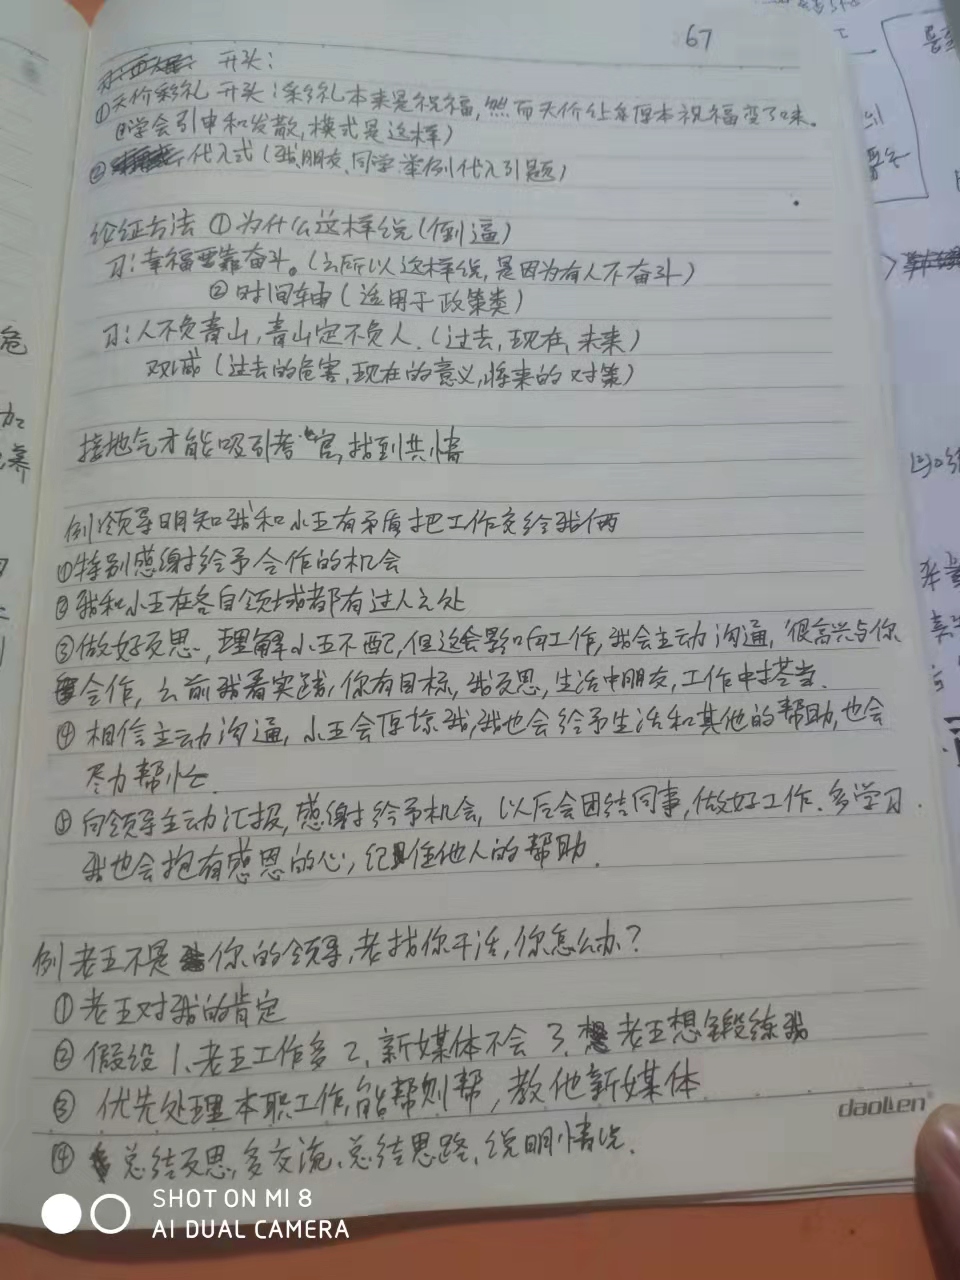 67
开头:
①天价彩礼 开头:彩礼本来是祝福,然而天价让原本祝福变了味。
(学会引申和发散,模式是这样)
② 代入式(我、朋友、同学举例代入引题)
论证方法 ①为什么这样说(倒逼)
习:幸福要靠奋斗。(之所以这样说,是因为有人不奋斗)
②时间轴(适用于政策类)
习:人不负青山,青山定不负人.(过去,现在,未来)
(过去的危害,现在的意义,将来的对策)
接地气才能吸引考官,找到共情
例领导明知我和小王有矛盾把工作交给我俩
①特别感谢给予合作的机会
②我和小王在各自领域都有过人之处
③做好反思,理解小王不配,但这会影响工作,我会主动沟通,很高兴与你
合作,之前我看实践,你有目标,我反思,生活中朋友,工作中搭档.
④相信主动沟通,小王会原谅我,我也会给予生活和其他的帮助,也会
尽力帮忙.
⑤向领导主动汇报,感谢给予机会,以后会团结同事,做好工作.多学习.
我也会抱有感恩的心,记住他人的帮助.
例老王不是你的领导,老找你干活,你怎么办?
①老王对我的肯定
②假设 1.老王工作多 2.新媒体不会 3.老王想锻练我
③优先处理本职工作,能帮则帮,教他新媒体
④总结反思,多交流,总结思路,说明情况.
daolen
SHOT ON MI 8
AI DUAL CAMERA